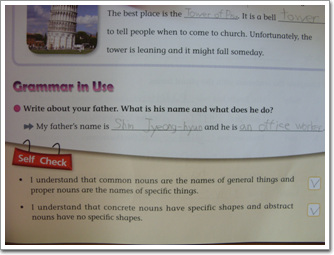 The best place is the Tower of Pisa. It is a bell tower
to tell people when to come to church. Unfortunately, the
tower is leaning and it might fall someday.
Grammar in Use
Write about your father. What is his name and what does he do?
My father's name is Shin and he is an office worker
Self Check
• I understand that common nouns are the names of general things and
proper nouns are the names of specific things.
• I understand that concrete nouns have specific shapes and abstract
nouns have no specific shapes.